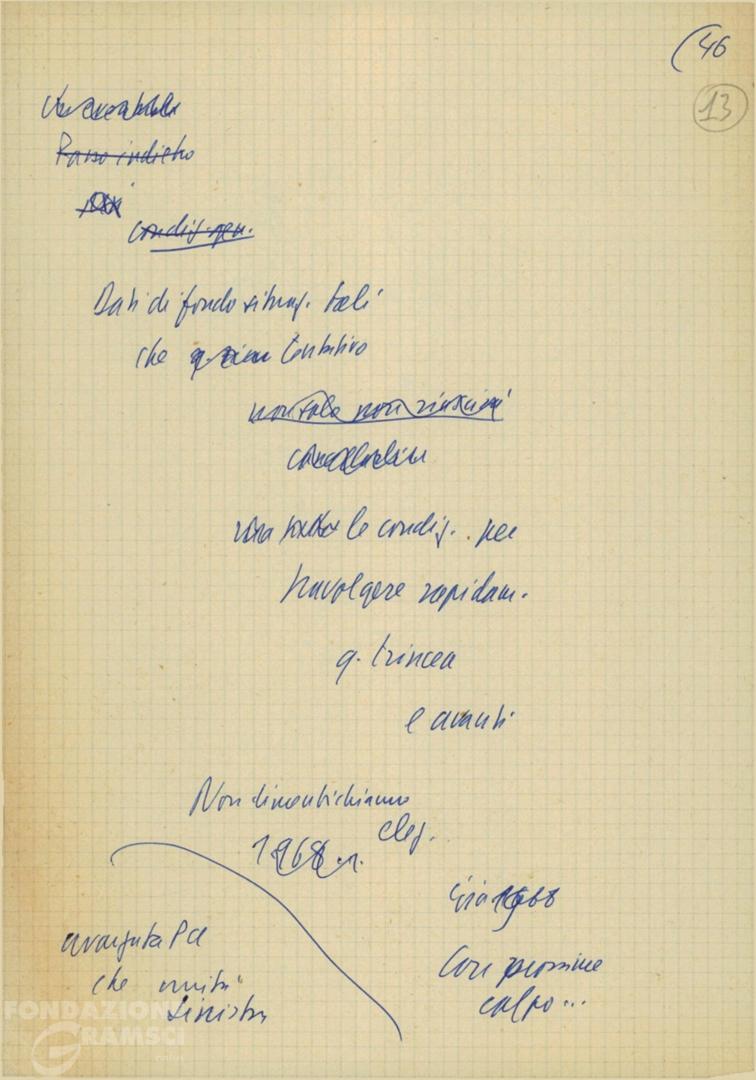 (46
13
Passo indietro
condiz. gen.
Dati di fondo situaz. tali
che tentativo
non solo non riuscirà
ma le condiz. per
travolgere rapidam.
q. trincea
e avanti
Non dimentichiamo
elez.
1968
già
avanzata PCI
che unità
sinistra
Con prossime
colpo...
FONDAZIONE
GRAMSCI
onlus